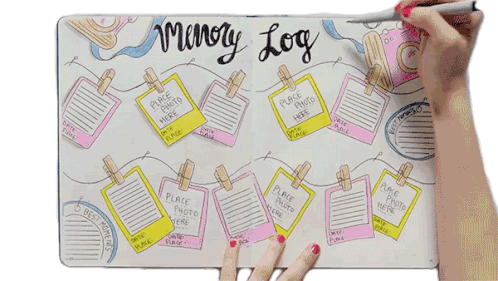 Memory Log
DATE:
PLACE:
PLACE
PHOTO
HERE
DATE:
PLACE:
DATE:
PLACE:
PLACE
PHOTO
HERE
DATE:
PLACE:
DATE:
PLACE:
DATE:
PLACE:
PLACE
PHOTO
HERE
DATE:
PLACE:
DATE:
PLACE
PHOTO
HERE
DATE:
PLACE:
PLACE
PHOTO
HERE
DATE:
PLACE:
BEST MOMENTS